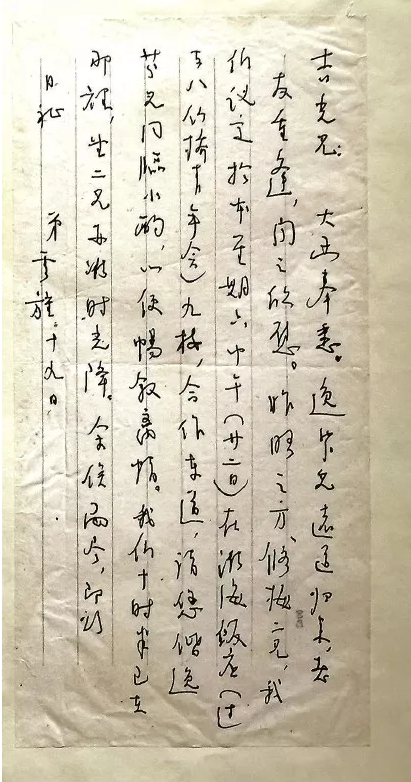 吉光兄: 大函奉悉。逸生兄远道归来,老
友重逢,闻之欣慰。昨晤之方、修梅二兄,我
们议定于本星期六中午(廿二日)在湖海饭店(过
去八仙桥青年会)九楼,合作东道,请您偕逸
兄同临小酌,以便畅叙离情。我们十时半已在
那里,二兄亦递时光降。余俟面尽,即颂
日祉
弟 十九日